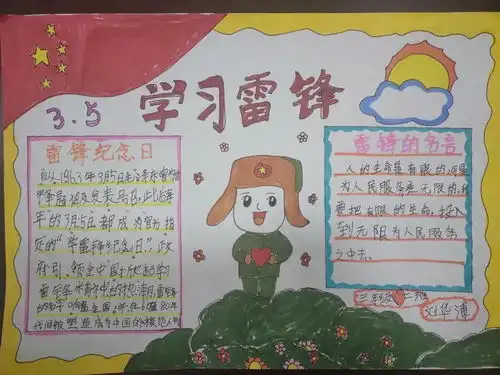 3.5
学习雷锋
雷锋纪念日
自从1963年3月5日毛泽东
发表后,此后每
年的3月5日都成为官方指
定的“学雷锋纪念日”。政
府引领全中国掀起学习
雷锋
全国,并在
成为中国的模范
雷锋的名言
人的生命是有限的,可是
为人民服务是无限的,我
要把有限的生命,投入
到无限为人民服务
之中去。
三年级二班
刘华溥